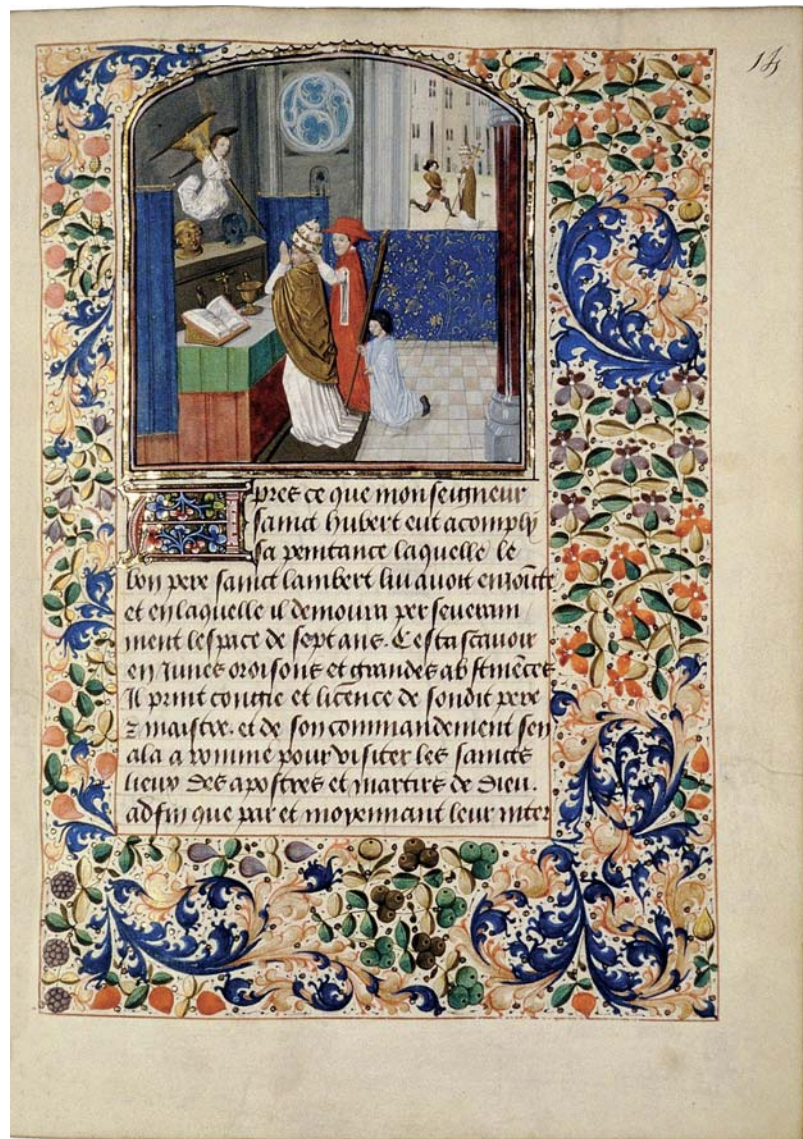 14
Apres ce que monseigneur
sainct hubert eut acomply
sa penitance laquelle le
bon pere sainct lambert lui avoit enioicte
et en laquelle il demoura perseveram
ment lespace de sept ans. Cest a scavoir
en Junes oroisons et grandes abstinẽces
Il print congie et licence de sondit pere
⁊ maistre. et de son commandement sen
ala a romme pour visiter les saincts
lieux des apostres et martirs de dieu.
adfin que par et moyennant leur inter